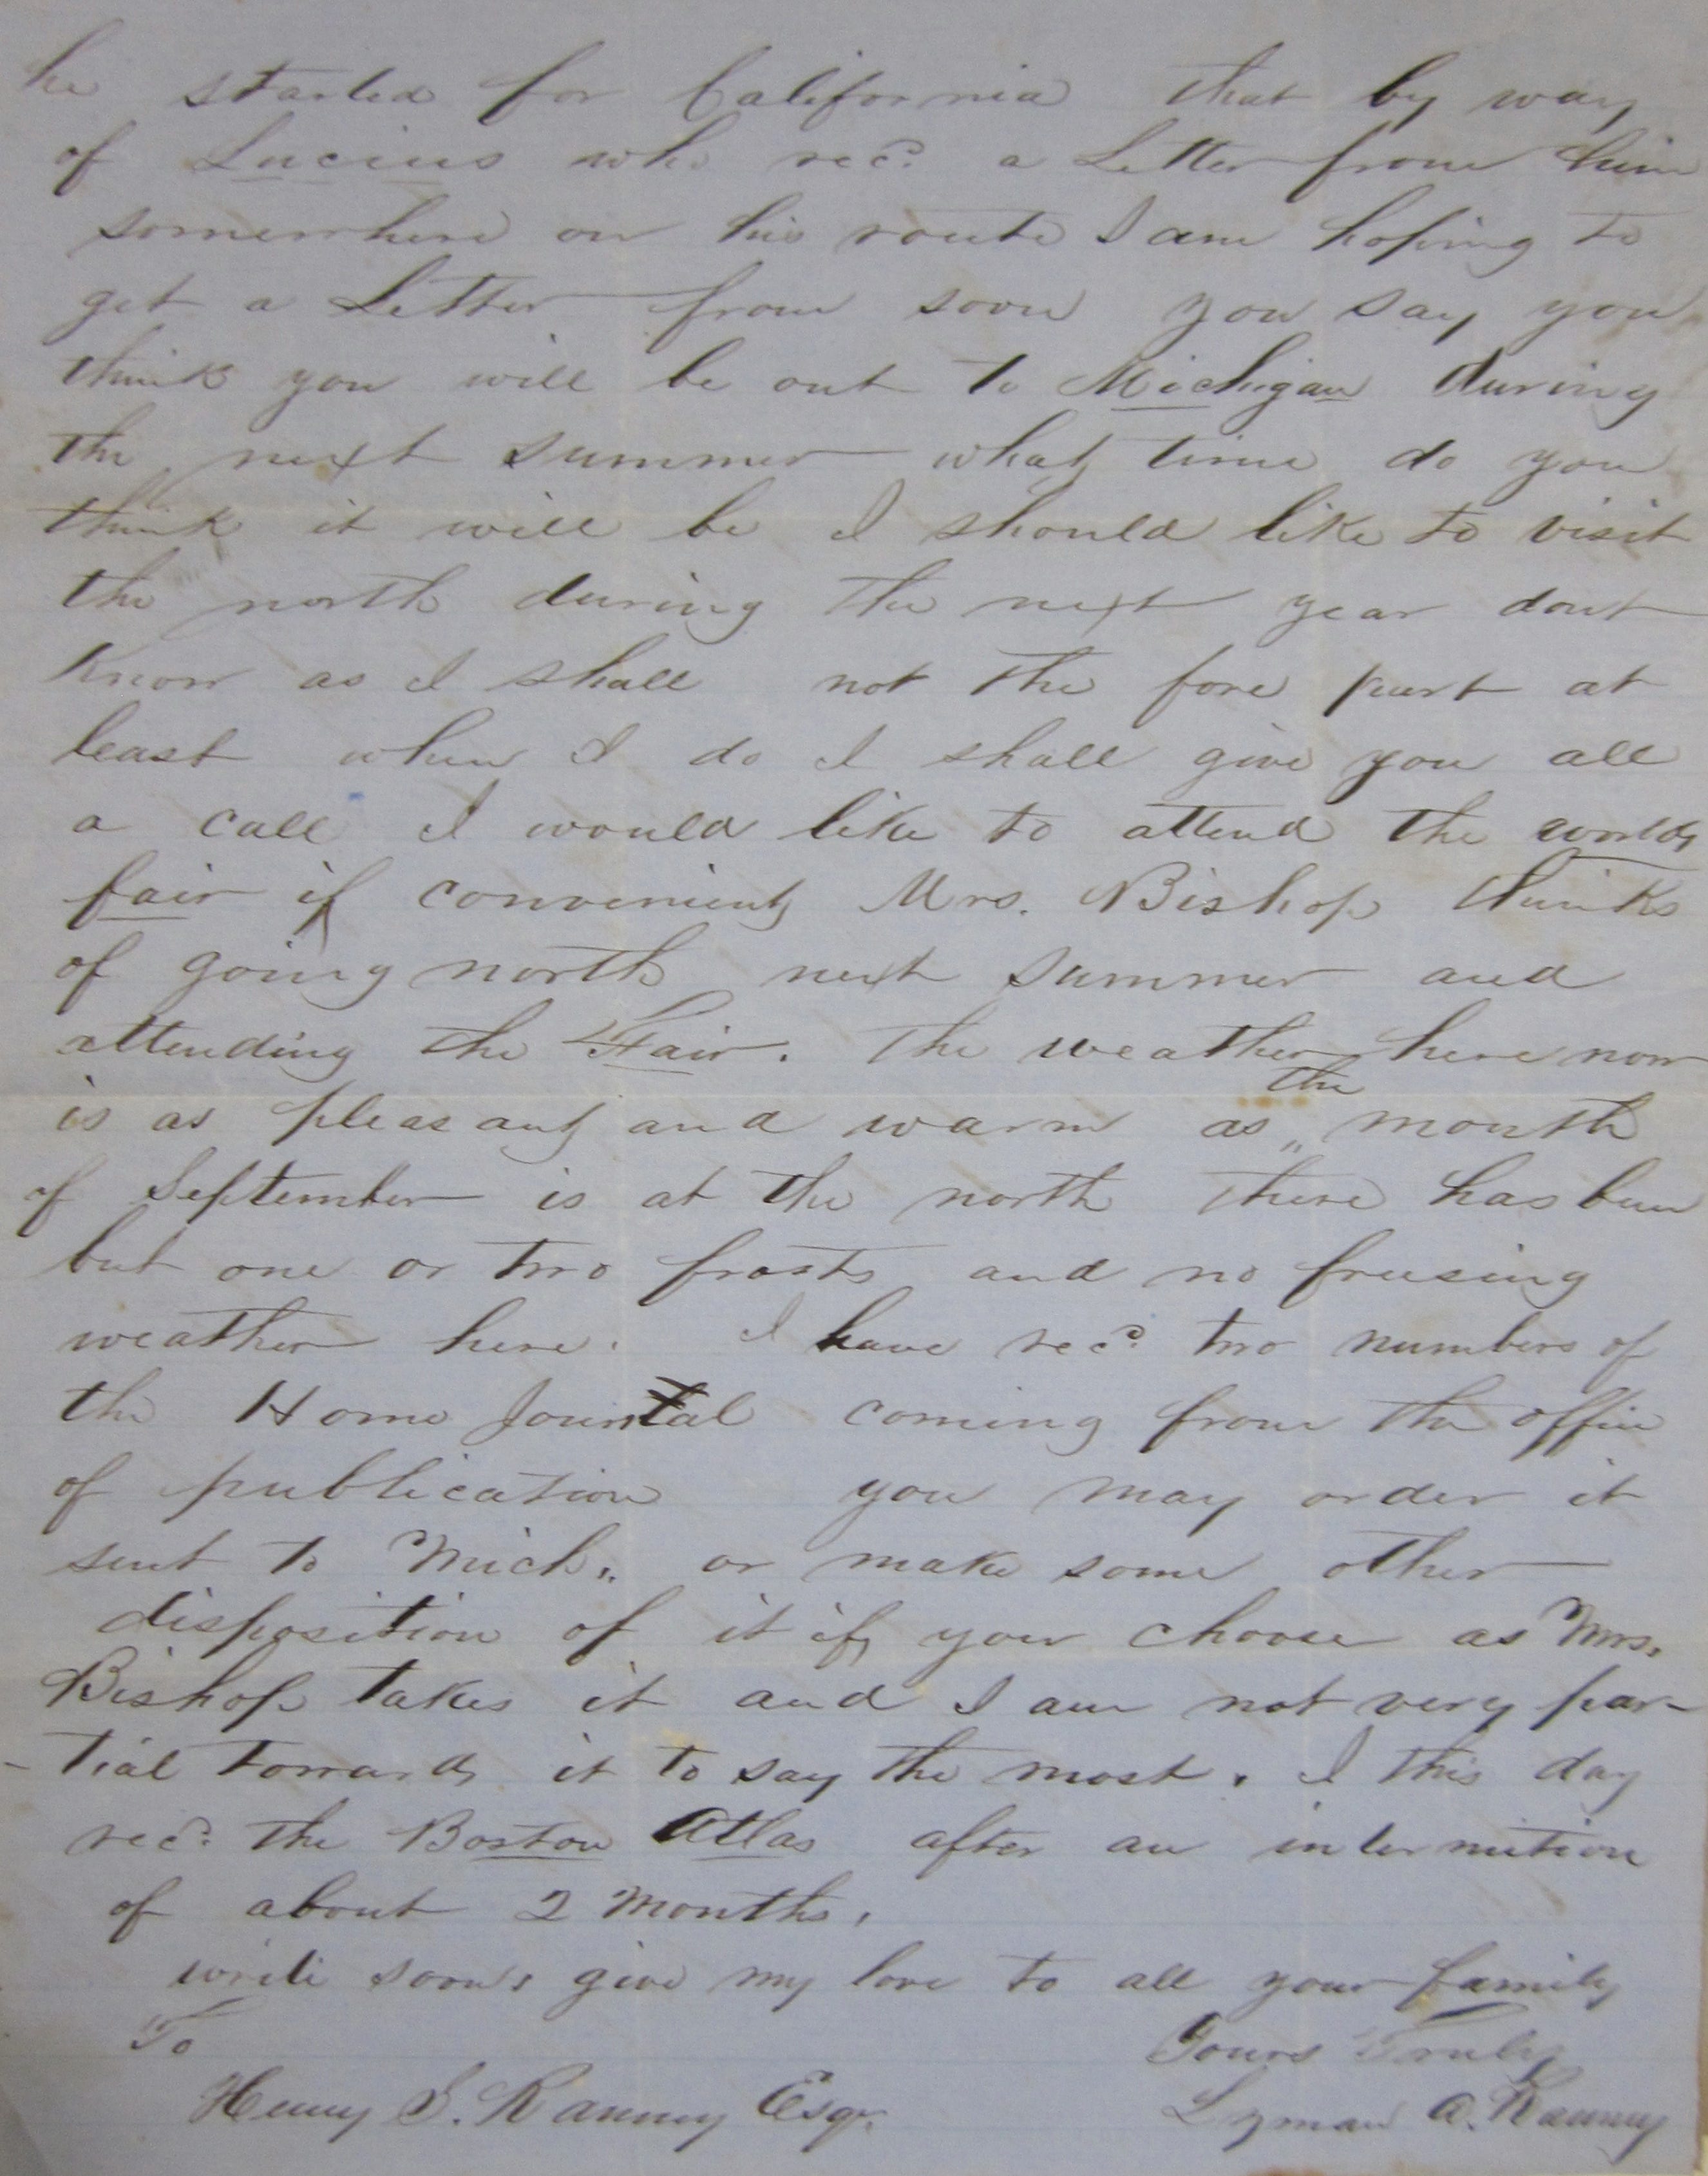 he started for California that by way
of Lucius who recd. a Letter from him
somewhere on his route I am hoping to
get a Letter from soon you say you
think you will be out to Michigan during
the next summer what time do you
think it will be I should like to visit
the north during the next year dont
know as I shall not the fore part at
least when I do I shall give you all
a call I would like to attend the worlds
fair if convenient Mrs. Bishop thinks
of going north next summer and
attending the Fair. The weather here now
is as pleasant and warm as the month
of September is at the north there has been
but one or two frosts and no freesing
weather here. I have recd. two numbers of
the Home Journal coming from the office
of publication you may order it
sent to Mich. or make some other
disposition of it if you choose as Mrs.
Bishop takes it and I am not very par-
-tial towards it to say the most. I this day
recd. the Boston Atlas after an intermition
of about 2 months.
write soon, give my love to all your family
To Yours Truly
Henry S. Ranney Esqr. Lyman A. Ranney